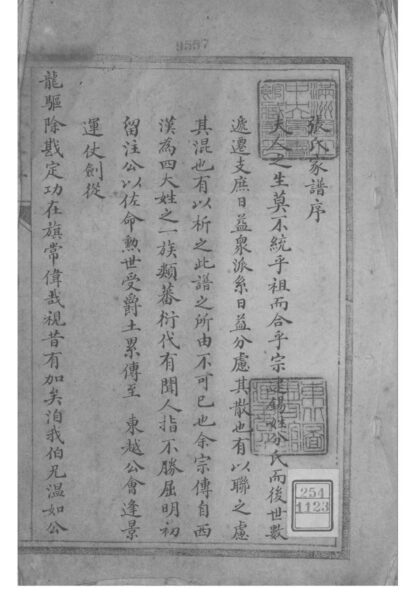 9557
張氏家譜序
夫人之生莫不統乎祖而合乎宗建錫姓分氏而後世數
遞遷支庶日益衆派系日益分慮其散也有以聯之慮
其混也有以析之此譜之所由不可已也余宗傳自西
漢為四大姓之一族類蕃衍代有聞人指不勝屈明初
留注公以佐命勲世受爵土累傳至 東越公會逢景
運仗劍從
龍驅除戡定功在旗常偉哉視昔有加矣洎我伯兄溫如公
254
1123